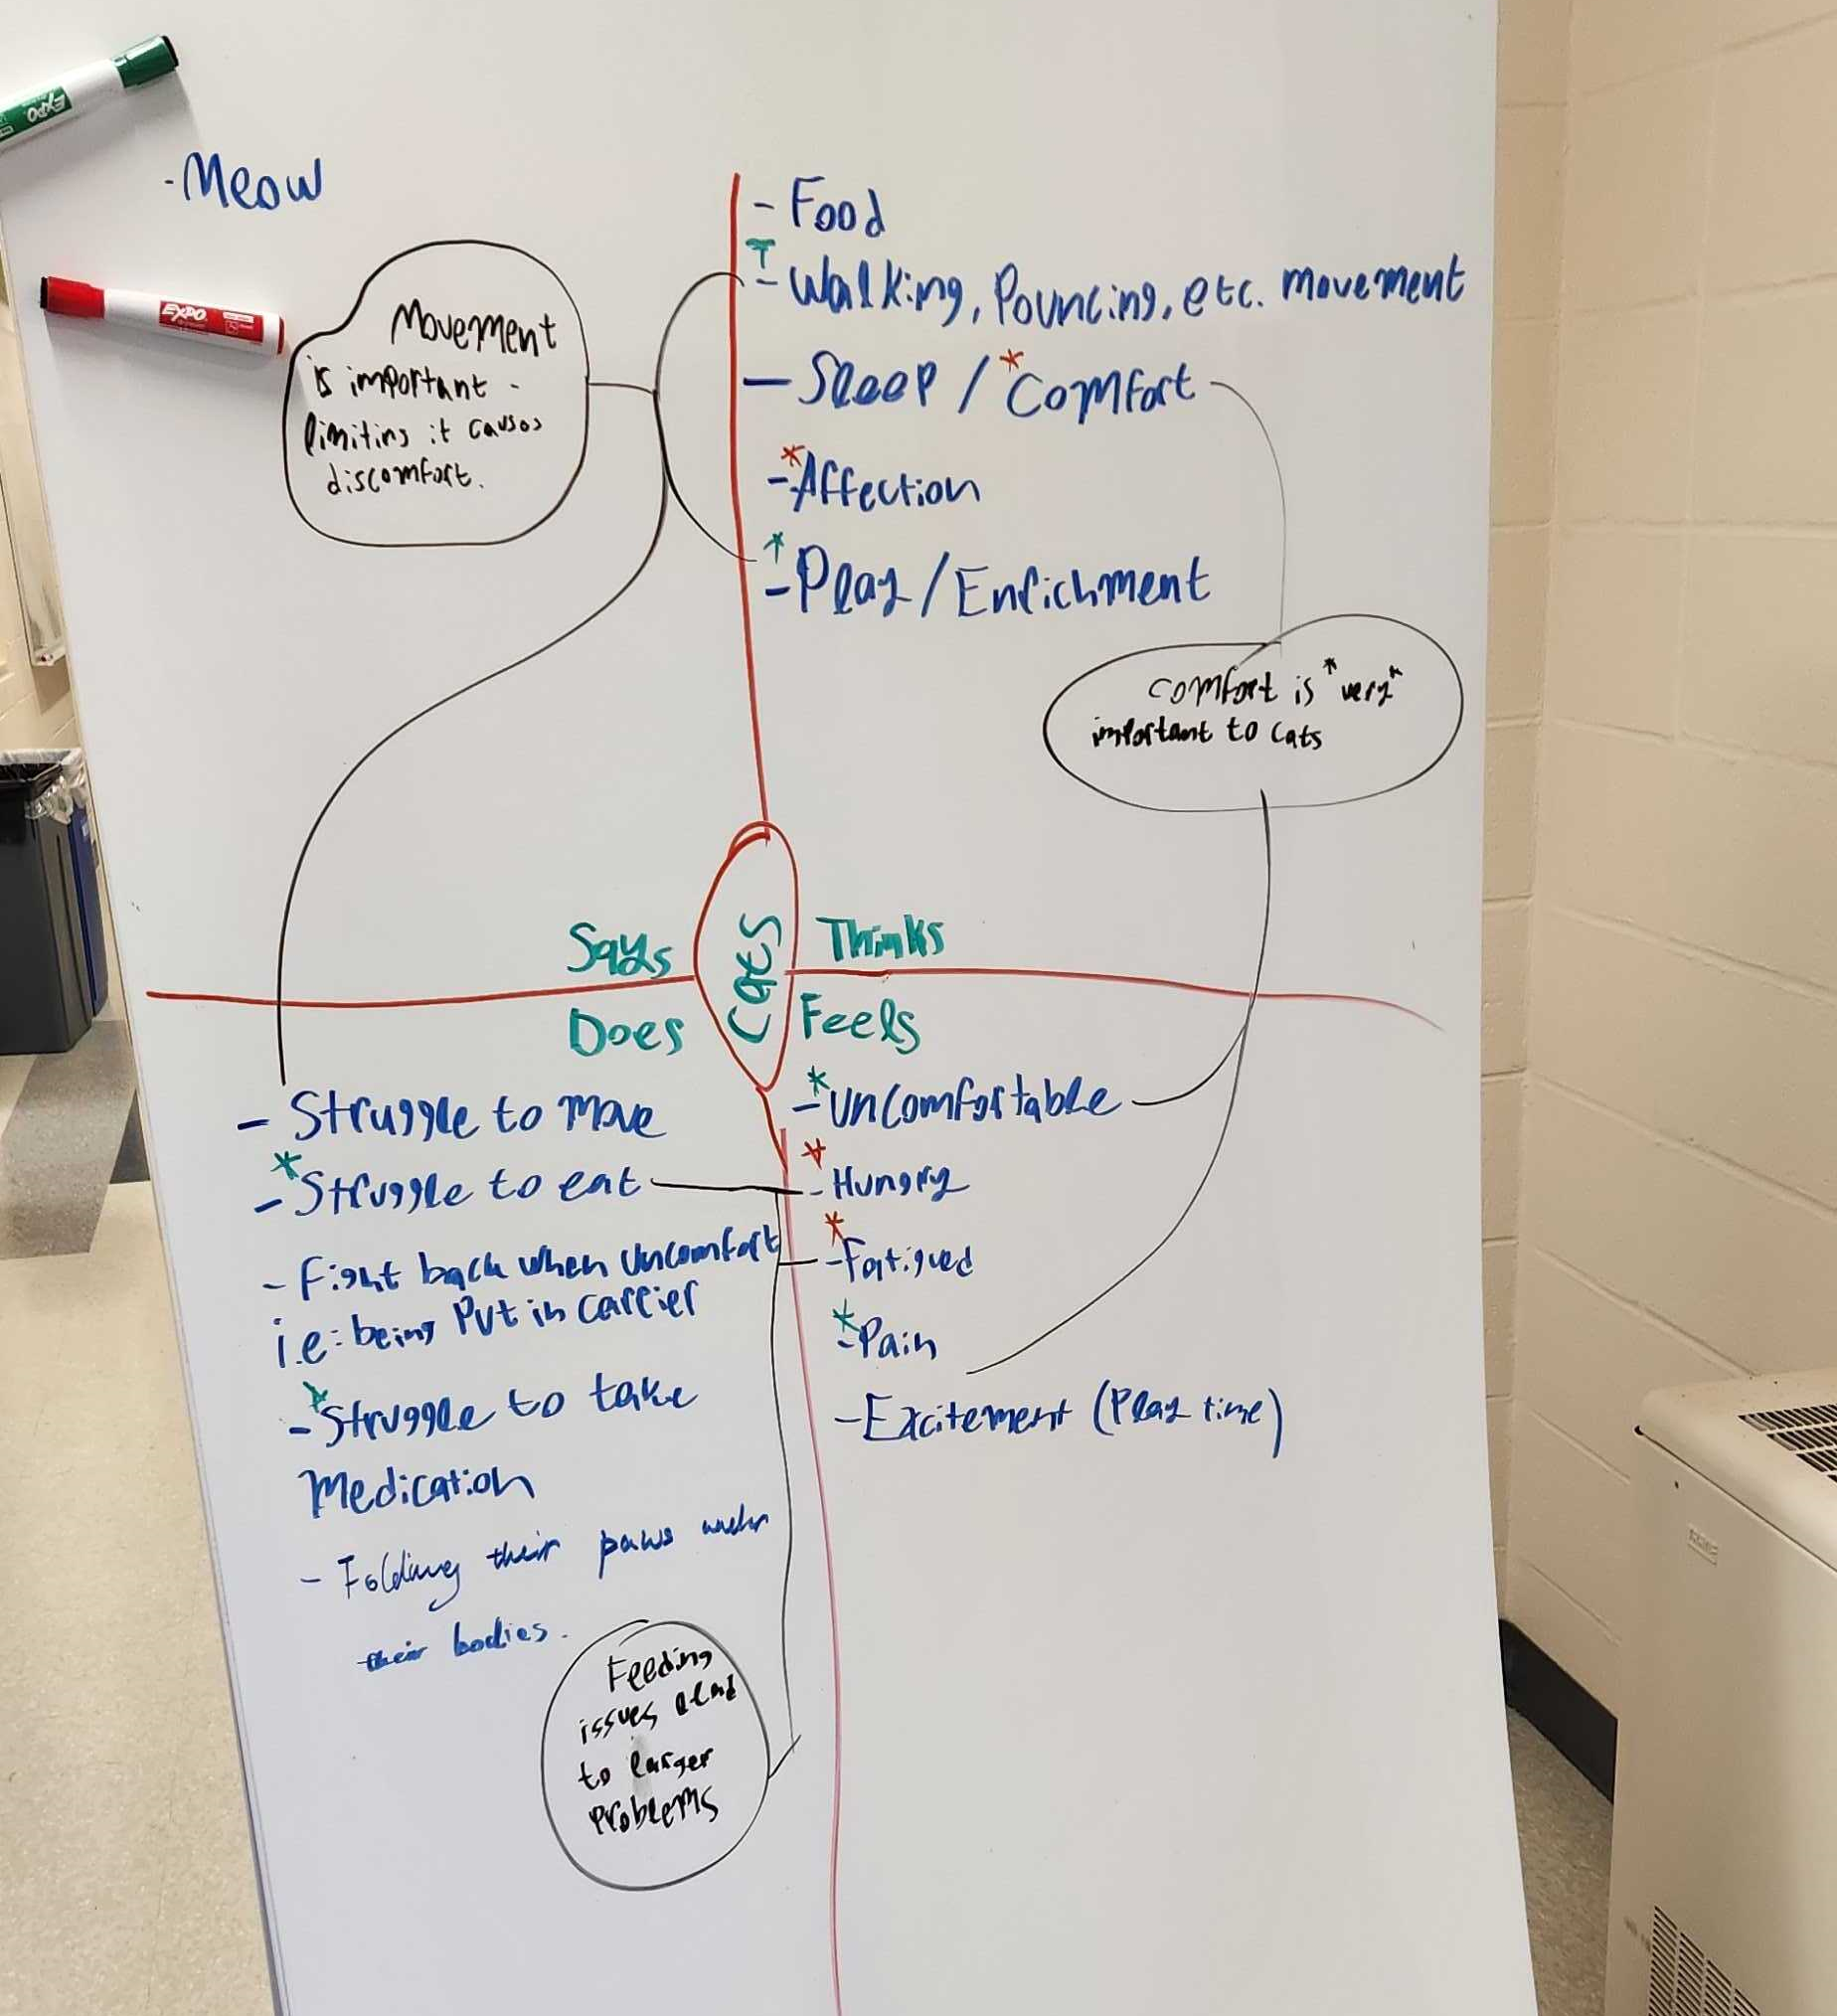 EXPO
- Meow
EXPO
Movement
is important -
limiting it causes
discomfort.
- Food
- Walking, Pouncing, etc. movement
- Sleep / *Comfort
* - Affection
* - Play / Enrichment
Comfort is *very*
important to cats
Says
Thinks
Cats
Does
Feels
- Struggle to move
* - Struggle to eat
- Fight back when uncomfort
i.e: being put in carrier
* - Struggle to take
Medication
- Folding their paws under
their bodies.
* - uncomfortable
* - Hungry
* - Fatigued
* - Pain
- Excitement (Play time)
Feeding
issues
to larger
Problems